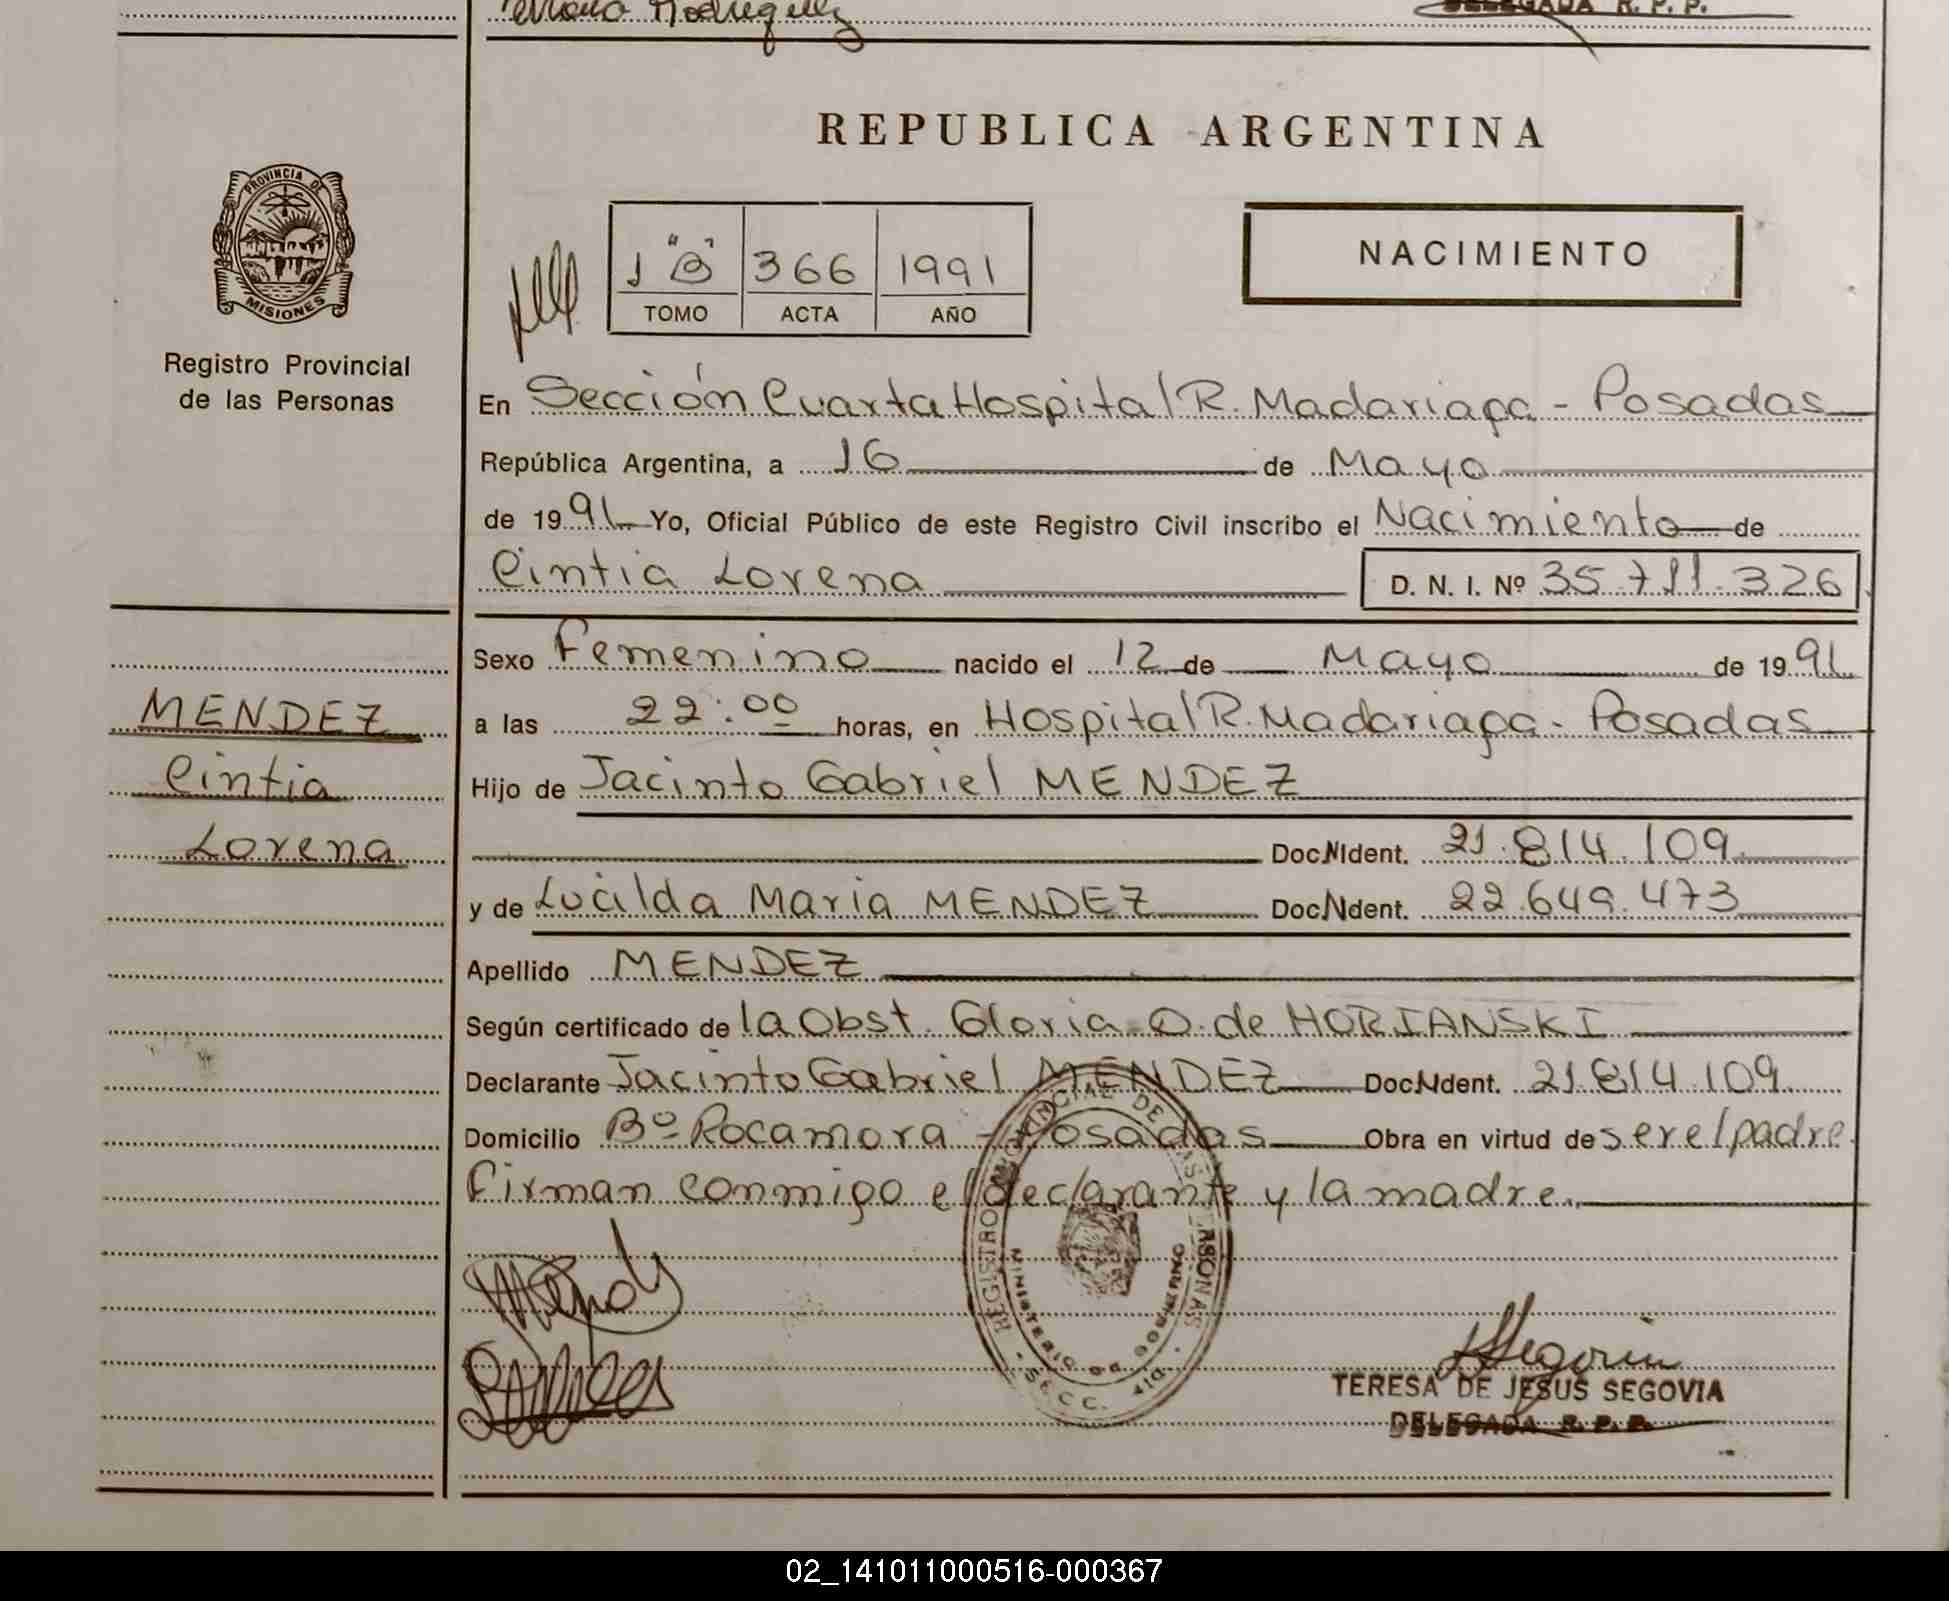 Rodriguez
DELEGADA R. P. P.
REPUBLICA ARGENTINA
PROVINCIA DE
MISIONES
Registro Provincial
de las Personas
1 "B" 366 1991
TOMO ACTA AÑO
NACIMIENTO
En Sección Cuarta Hospital R. Madariaga - Posadas
República Argentina, a 16 de Mayo
de 1991 Yo, Oficial Público de este Registro Civil inscribo el Nacimiento de
Cintia Lorena D. N. I. Nº 35.711.326
Sexo Femenino nacido el 12 de Mayo de 1991
MENDEZ
Cintia
Lorena
a las 22:00 horas, en Hospital R. Madariaga - Posadas
Hijo de Jacinto Gabriel MENDEZ
Doc. N Ident. 21.814.109
y de Lucilda Maria MENDEZ Doc. N Ident. 22.649.473
Apellido MENDEZ
Según certificado de la Obst. Gloria O. de HORIANSKI
Declarante Jacinto Gabriel MENDEZ Doc. N Ident. 21.814.109
Domicilio Bº Rocamora - Posadas Obra en virtud de ser el padre.
Firman conmigo el declarante y la madre.
REGISTRO PROVINCIAL DE LAS PERSONAS
MINISTERIO DE GOBIERNO
Segovia
TERESA DE JESUS SEGOVIA
DELEGADA R. P. P.
02_141011000516-000367